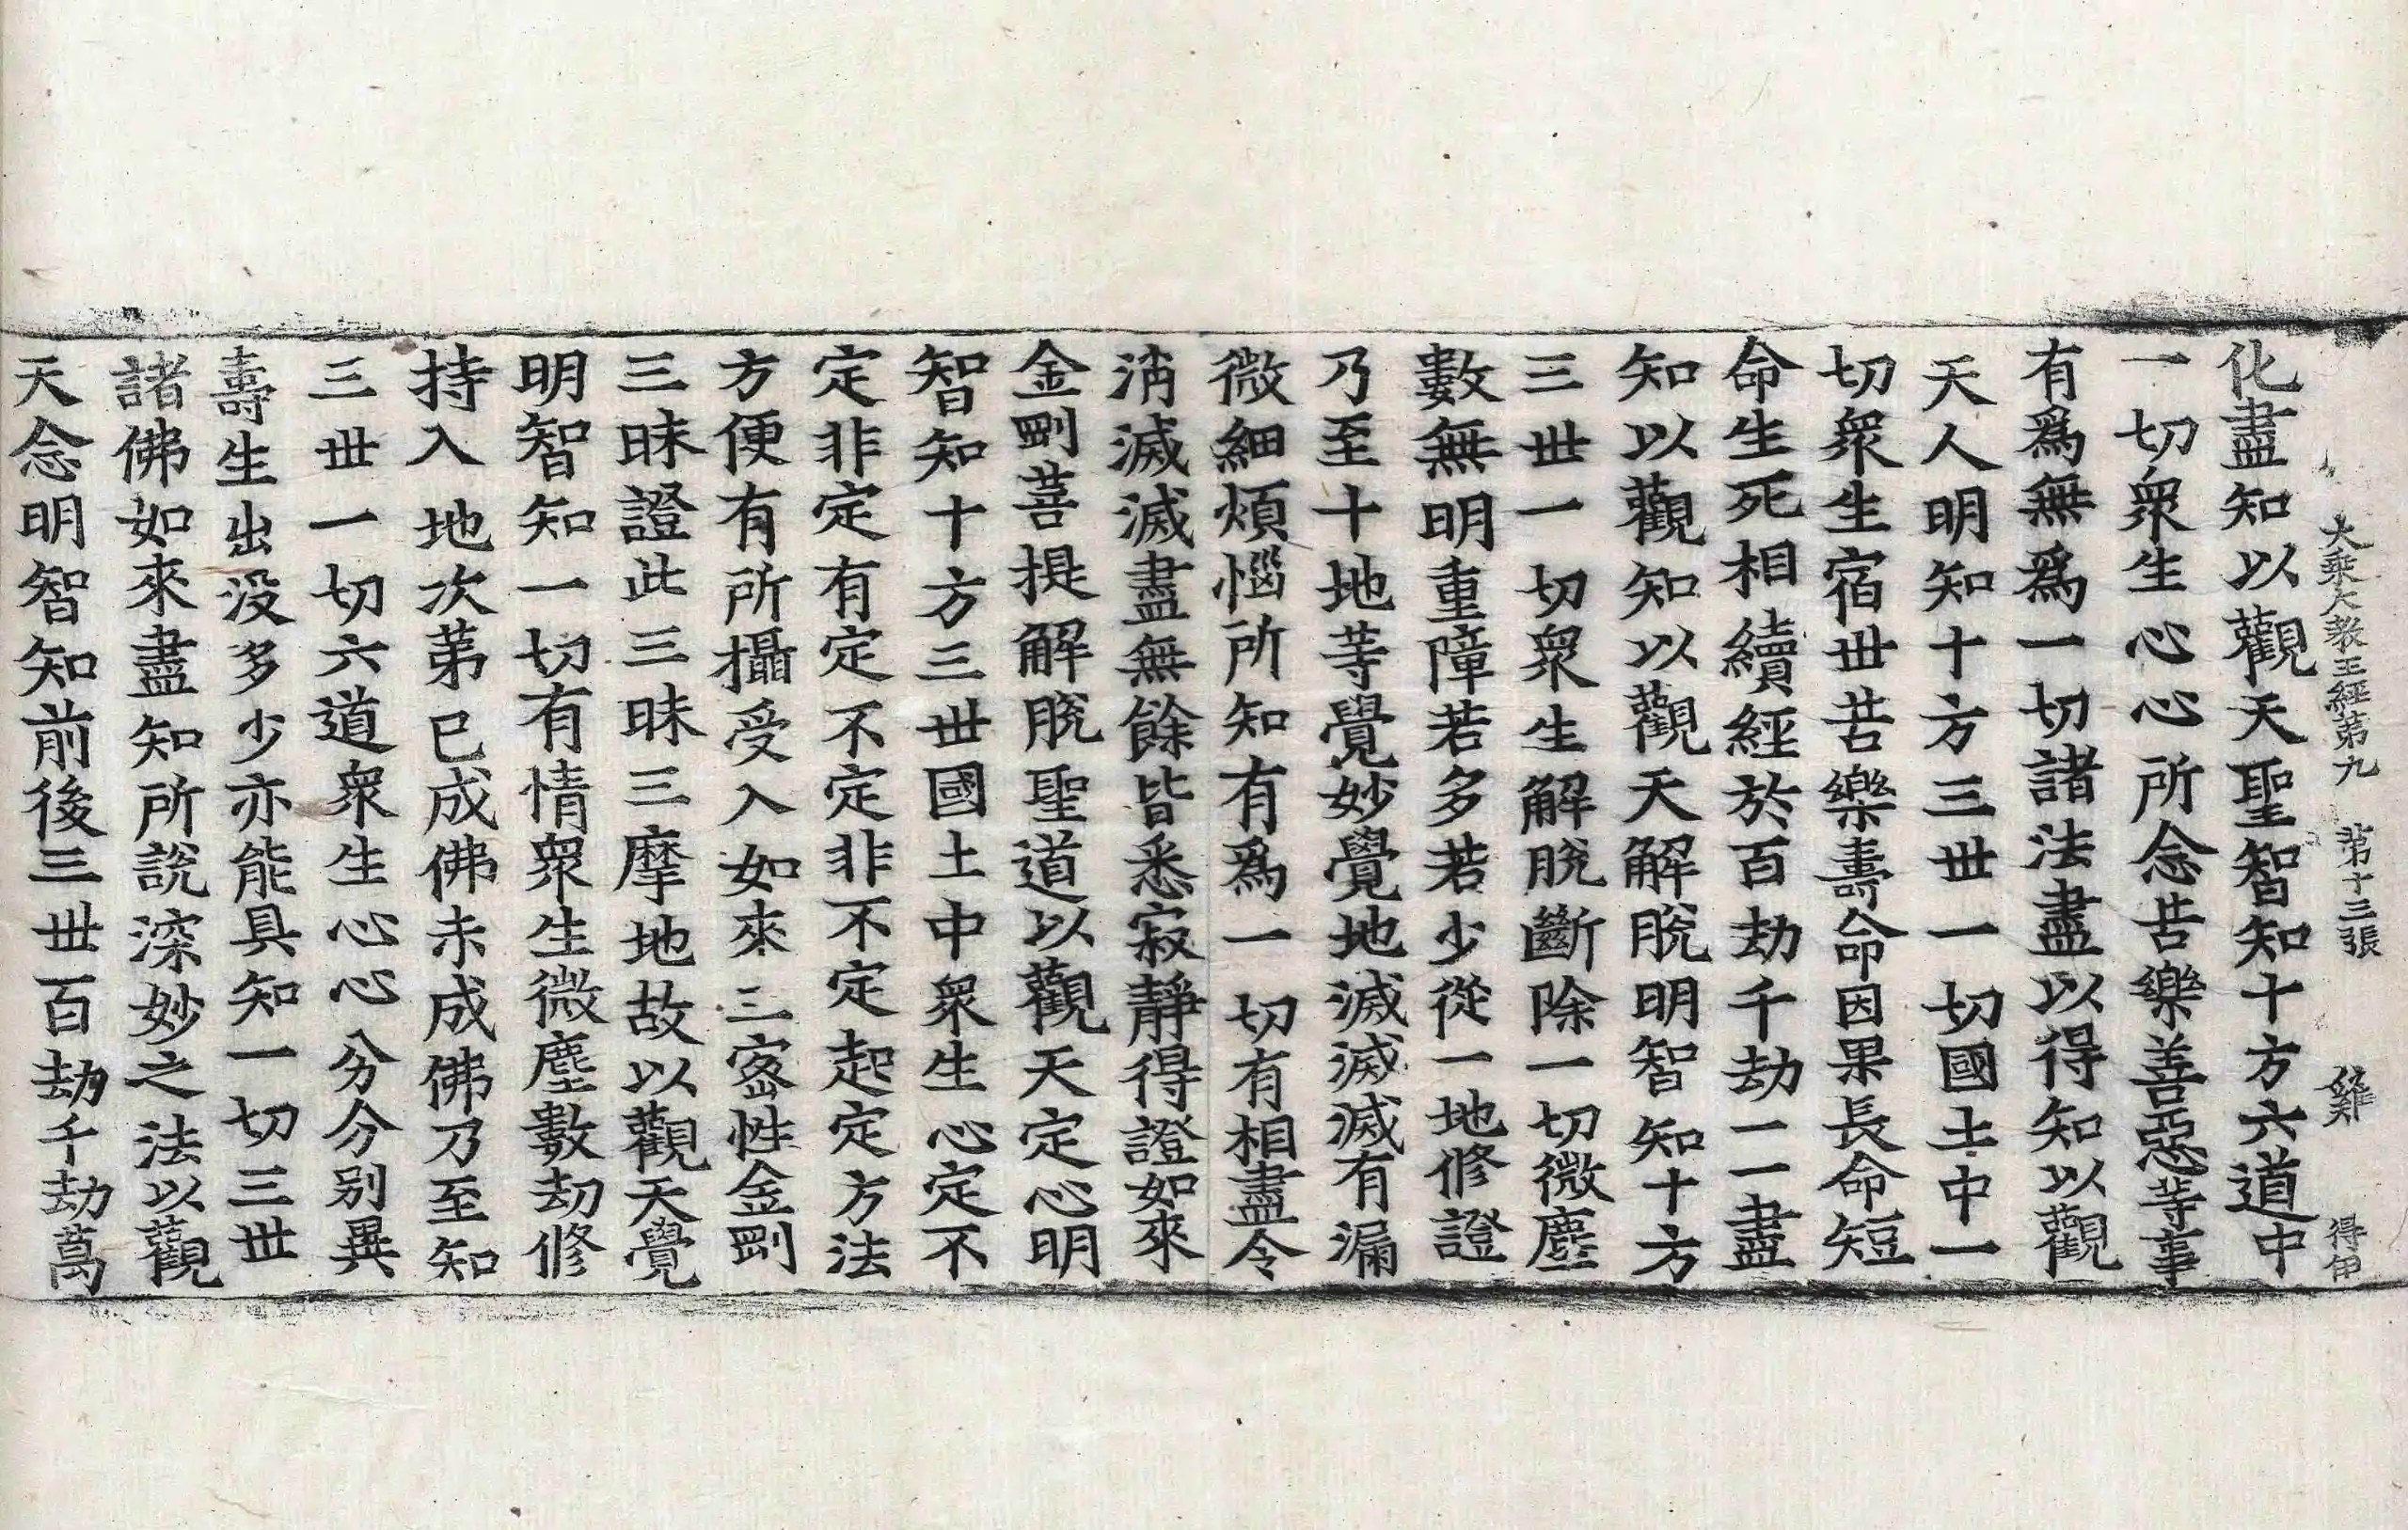 大乘大教王經第九　第十三張　雞　得甲
化盡知以觀天聖智知十方六道中
一切衆生心心所念苦樂善惡等事
有爲無爲一切諸法盡以得知以觀
天人明知十方三世一切國土中一
切衆生宿世苦樂壽命因果長命短
命生死相續經於百劫千劫一一盡
知以觀知以觀天解脫明智知十方
三世一切衆生解脫斷除一切微塵
數無明重障若多若少從一地修證
乃至十地等覺妙覺地滅滅滅有漏
微細煩惱所知有爲一切有相盡令
消滅滅盡無餘皆悉寂靜得證如來
金剛菩提解脫聖道以觀天定心明
智知十方三世國土中衆生心定不
定非定有定不定非不定起定方法
方便有所攝受入如來三密性金剛
三昧證此三昧三摩地故以觀天覺
明智知一切有情衆生微塵數劫修
持入地次第已成佛未成佛乃至知
三世一切六道衆生心心分分別異
壽生出没多少亦能具知一切三世
諸佛如來盡知所說深妙之法以觀
天念明智知前後三世百劫千劫萬